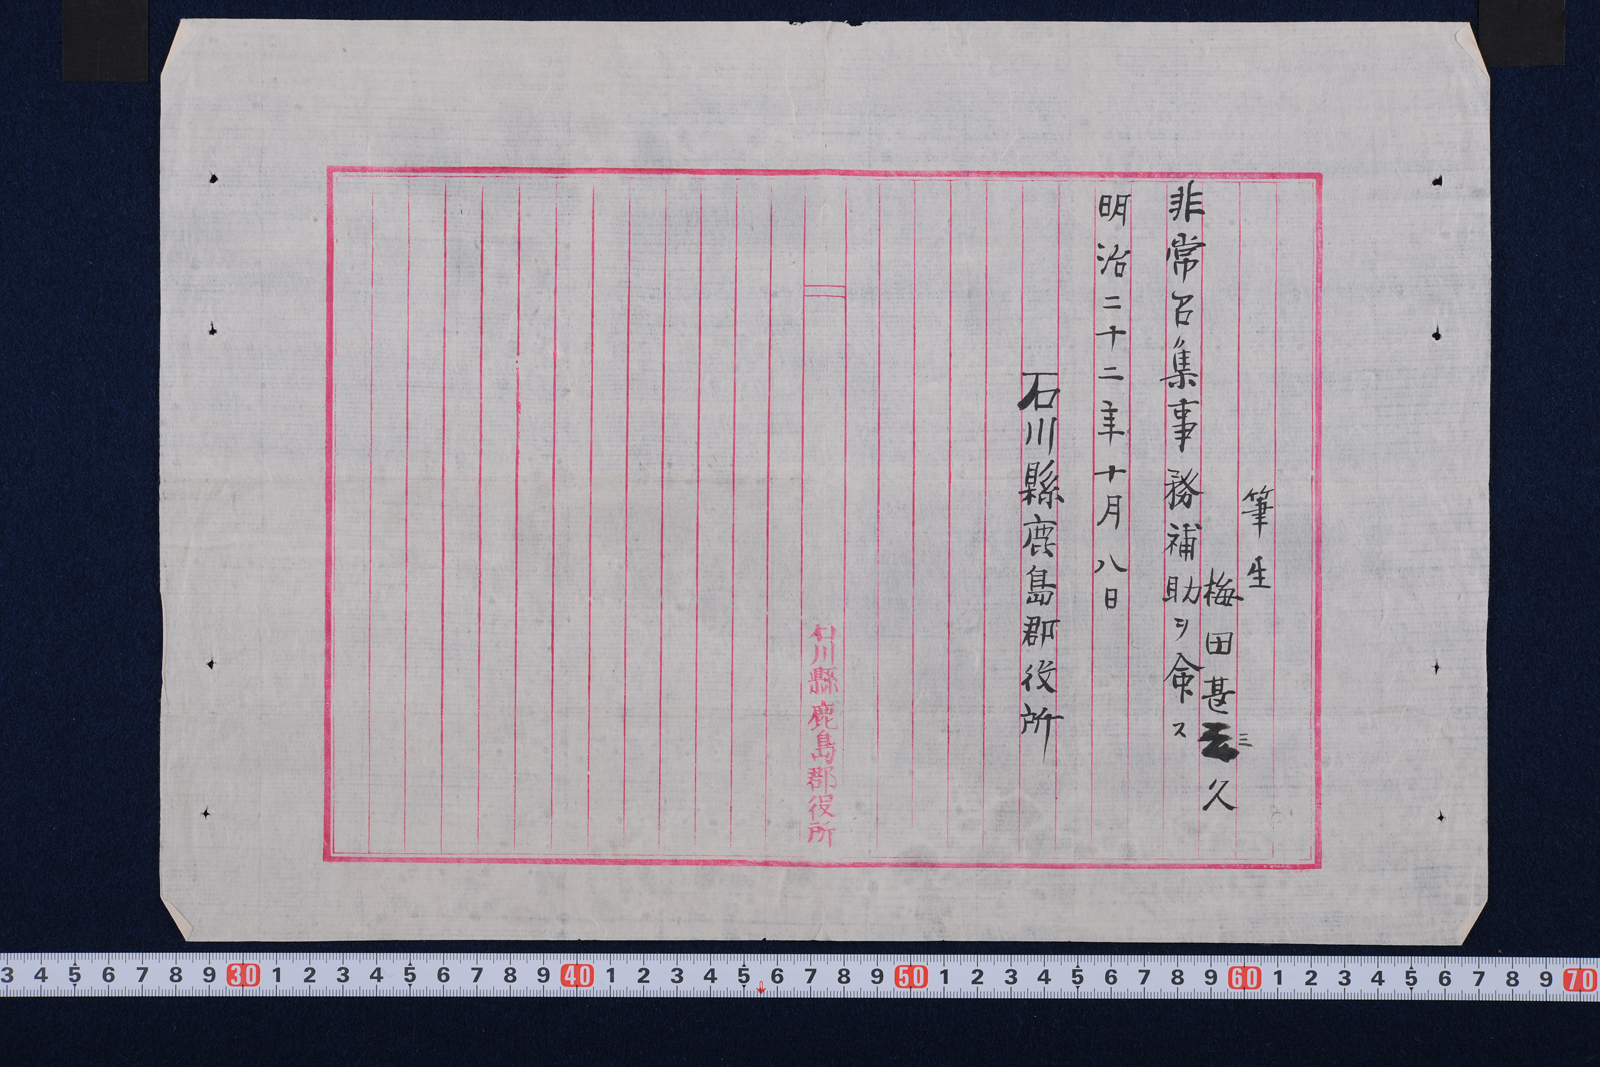 筆生
梅田甚三久
非常召集事務補助ヲ命ス
明治二十二年十月八日
石川縣鹿島郡役所
石川縣鹿島郡役所
3 4 5 6 7 8 9 30 1 2 3 4 5 6 7 8 9 40 1 2 3 4 5 6 7 8 9 50 1 2 3 4 5 6 7 8 9 60 1 2 3 4 5 6 7 8 9 70